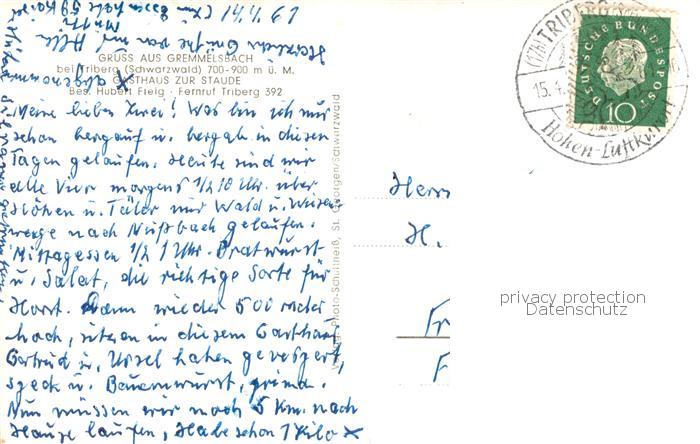 14.4.61
Herzliche Grüße von
GRUSS AUS GREMMELSBACH
bei Triberg (Schwarzwald) 700-900 m ü. M.
GASTHAUS ZUR STAUDE
Bes. Hubert Fleig · Fernruf Triberg 392
Meine lieben Zwei! Was bin ich nur
schon bergauf u. bergab in diesen
Tagen gelaufen. Heute sind wir
alle Vier morgens 1/2 10 Uhr. über
Höhen u. Täler nur Wald u. Wiesen
wege nach Nußbach gelaufen.
Mittagessen 1/2 1 Uhr. Bratwurst
u. Salat, die richtige Sorte für
Horst. Dann wieder 500 meter
hoch, sitzen in diesem Gasthaus
Gertrud u. Ursel haben gevespert,
speck u. Bauernwurst, prima.
Nun müssen wir noch 5 Km. nach
Hause laufen, Habe schon 1 Kilo x
x abgenommen
St. Georgen/Schwarzwald
Herrn
H.
Fr
F
TRIBERG
15.4.
Höhen-Luftkurort
DEUTSCHE BUNDESPOST
10
privacy protection
Datenschutz